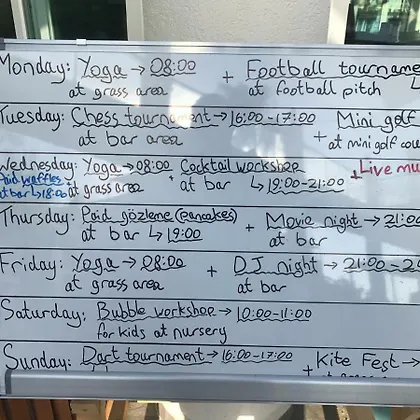 Monday: Yoga → 08:00 + Football tourname
at grass area at football pitch
Tuesday: Chess tournament → 16:00-17:00 Mini golf
at bar area + at mini golf cou
Wednesday: Yoga → 08:00 + Cocktail workshop + Live mu
Paid waffles
at bar ↳ 18:00 at grass area at bar ↳ 19:00-21:00
Thursday: Paid gözleme (pancakes) + Movie night → 21:00
at bar ↳ 19:00 at bar
Friday: Yoga → 08:00 + DJ night → 21:00-2
at grass area at bar
Saturday: Bubble workshop → 10:00-11:00
for kids at nursery
Sunday: Dart tournament → 16:00-17:00 + Kite Fest →